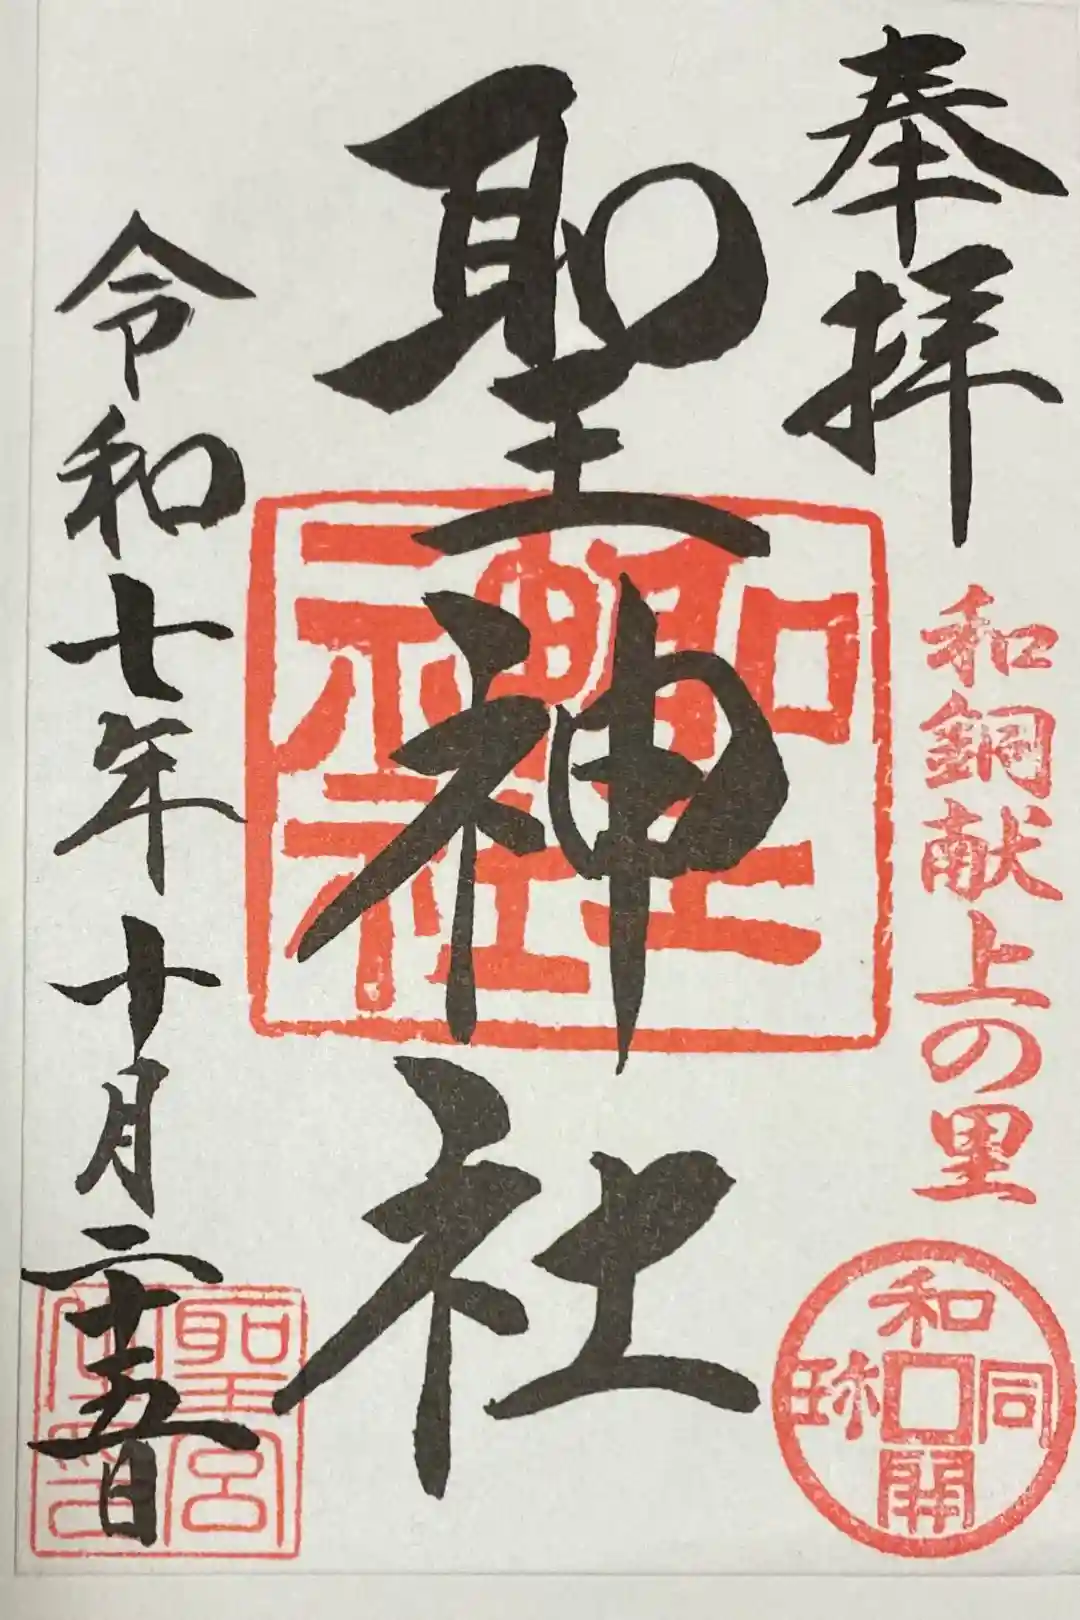 奉拝
和銅献上の里
和同開珎
聖神社
聖神社
令和七年十月二十五日
聖宮